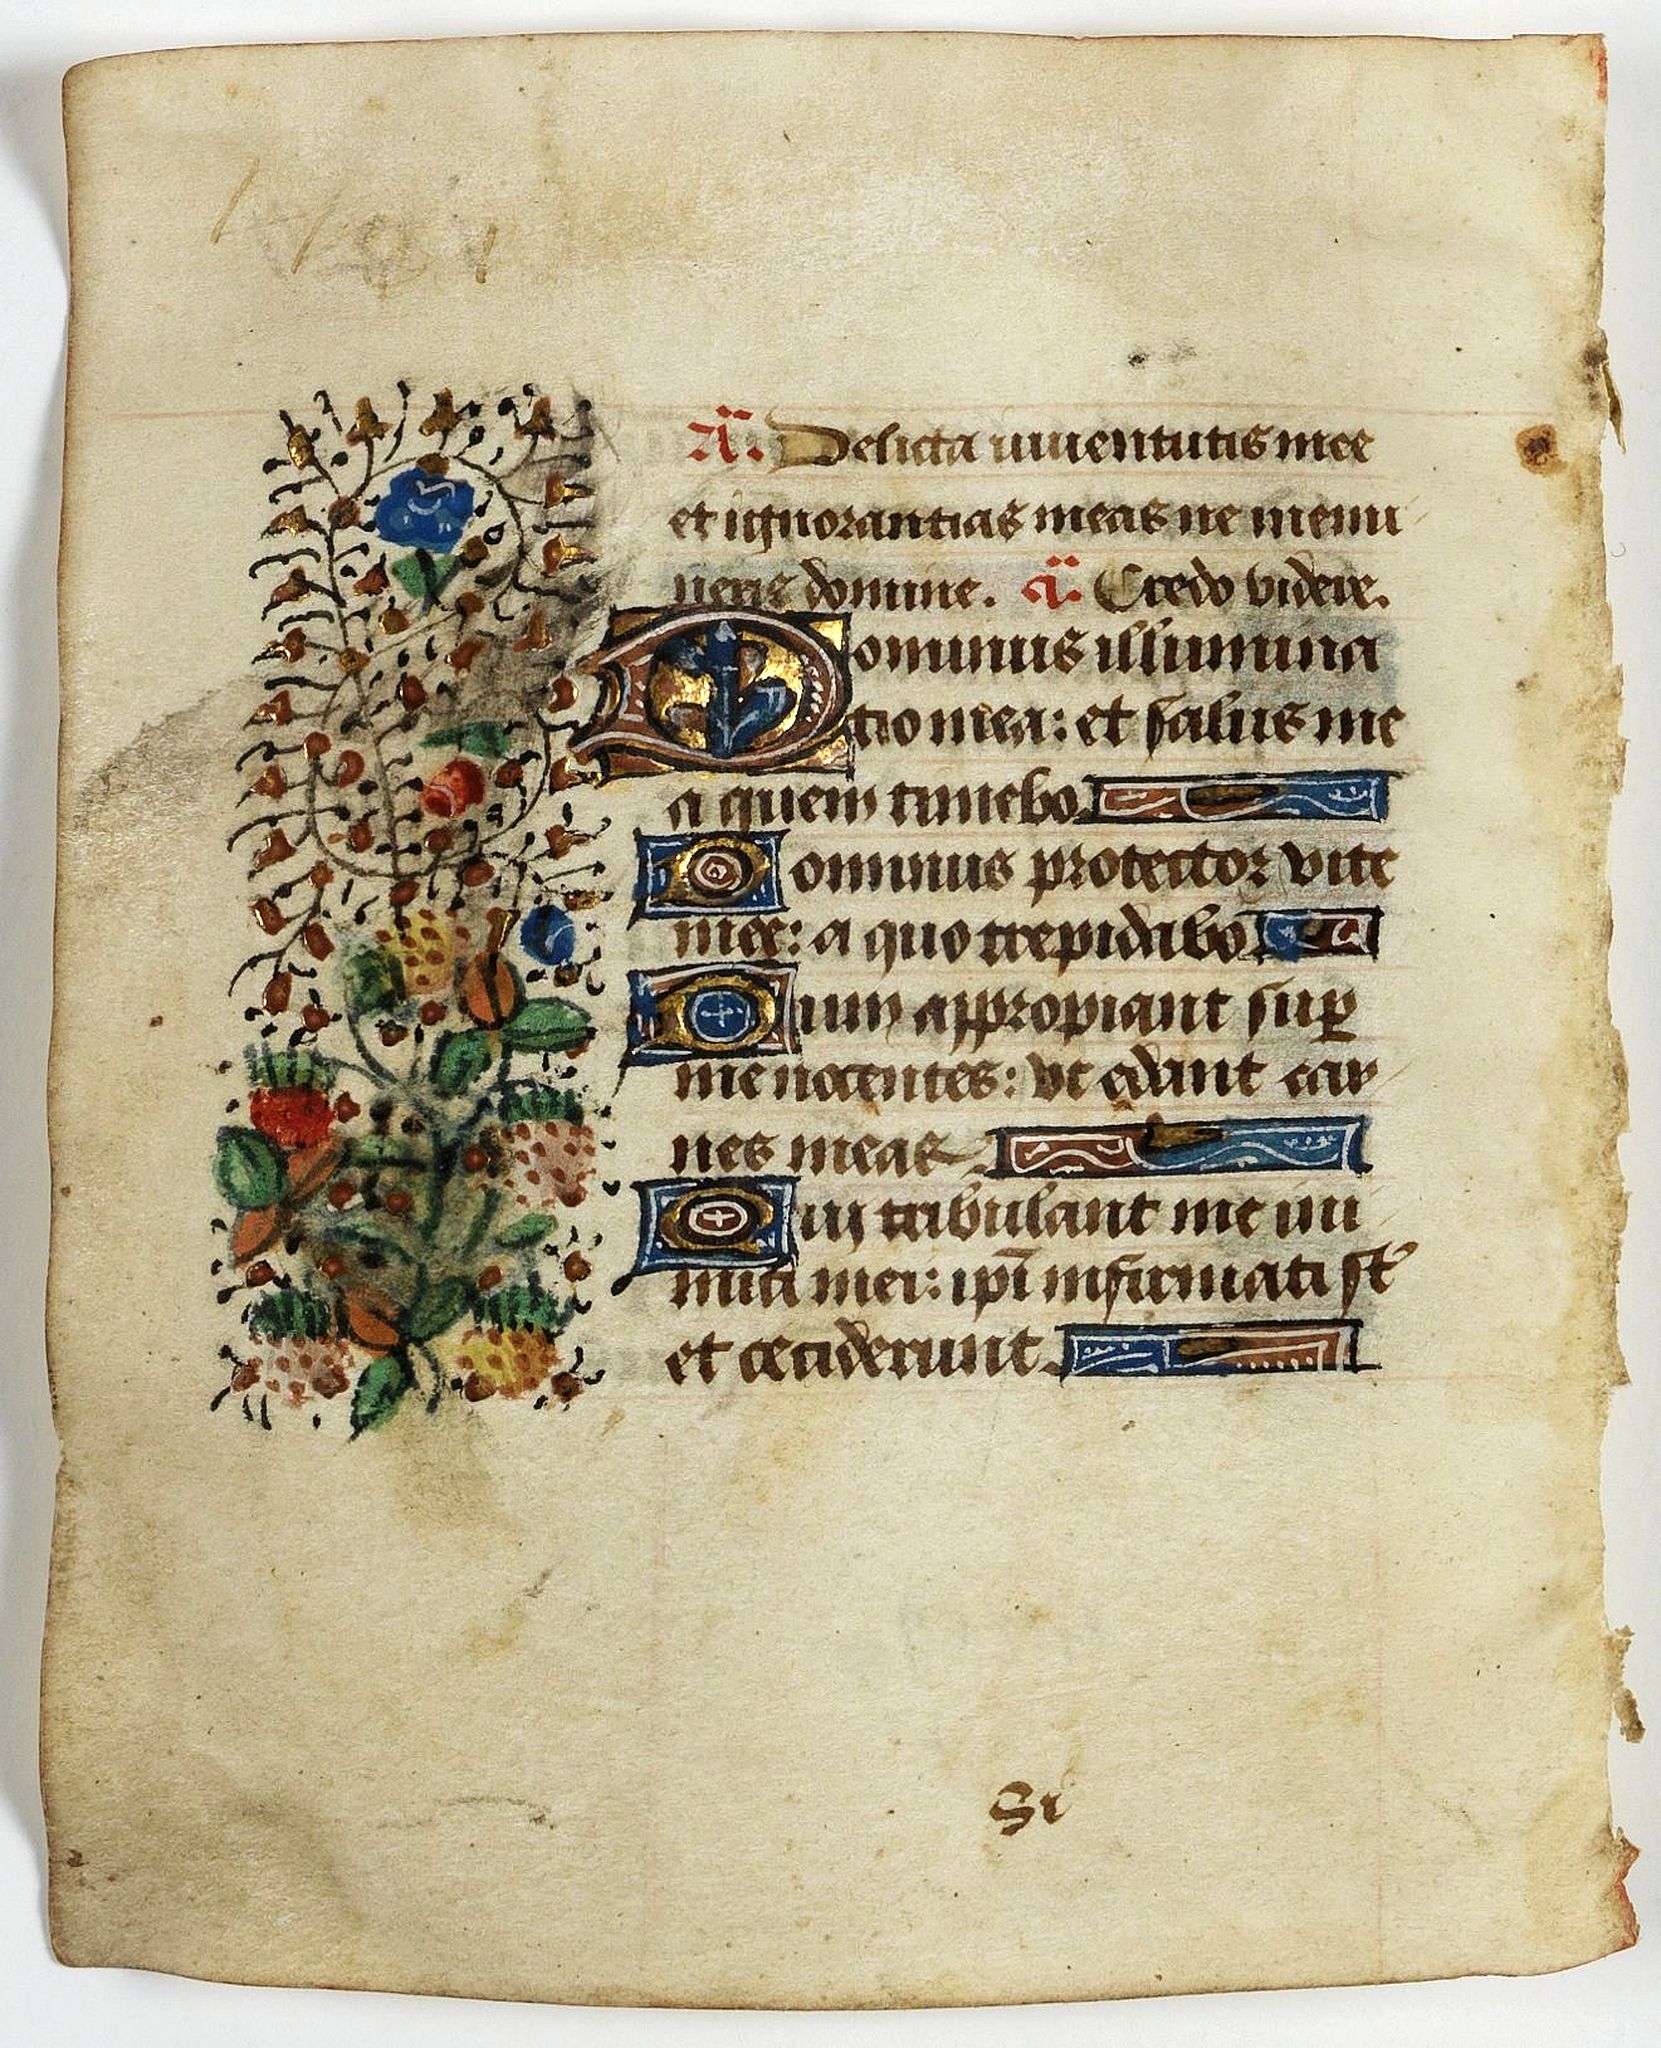 A. Delicta iuventutis mee
et ignorantias meas ne memi
neris domine. a. Credo videre.
Dominus illumina
tio mea: et salus me
a quem timebo.
Dominus protector vite
mee: a quo trepidabo
Dum appropiant sup
me nocentes: ut edant car
nes meas
Qui tribulant me ini
mici mei: ipi infirmati st
et ceciderunt.
Si